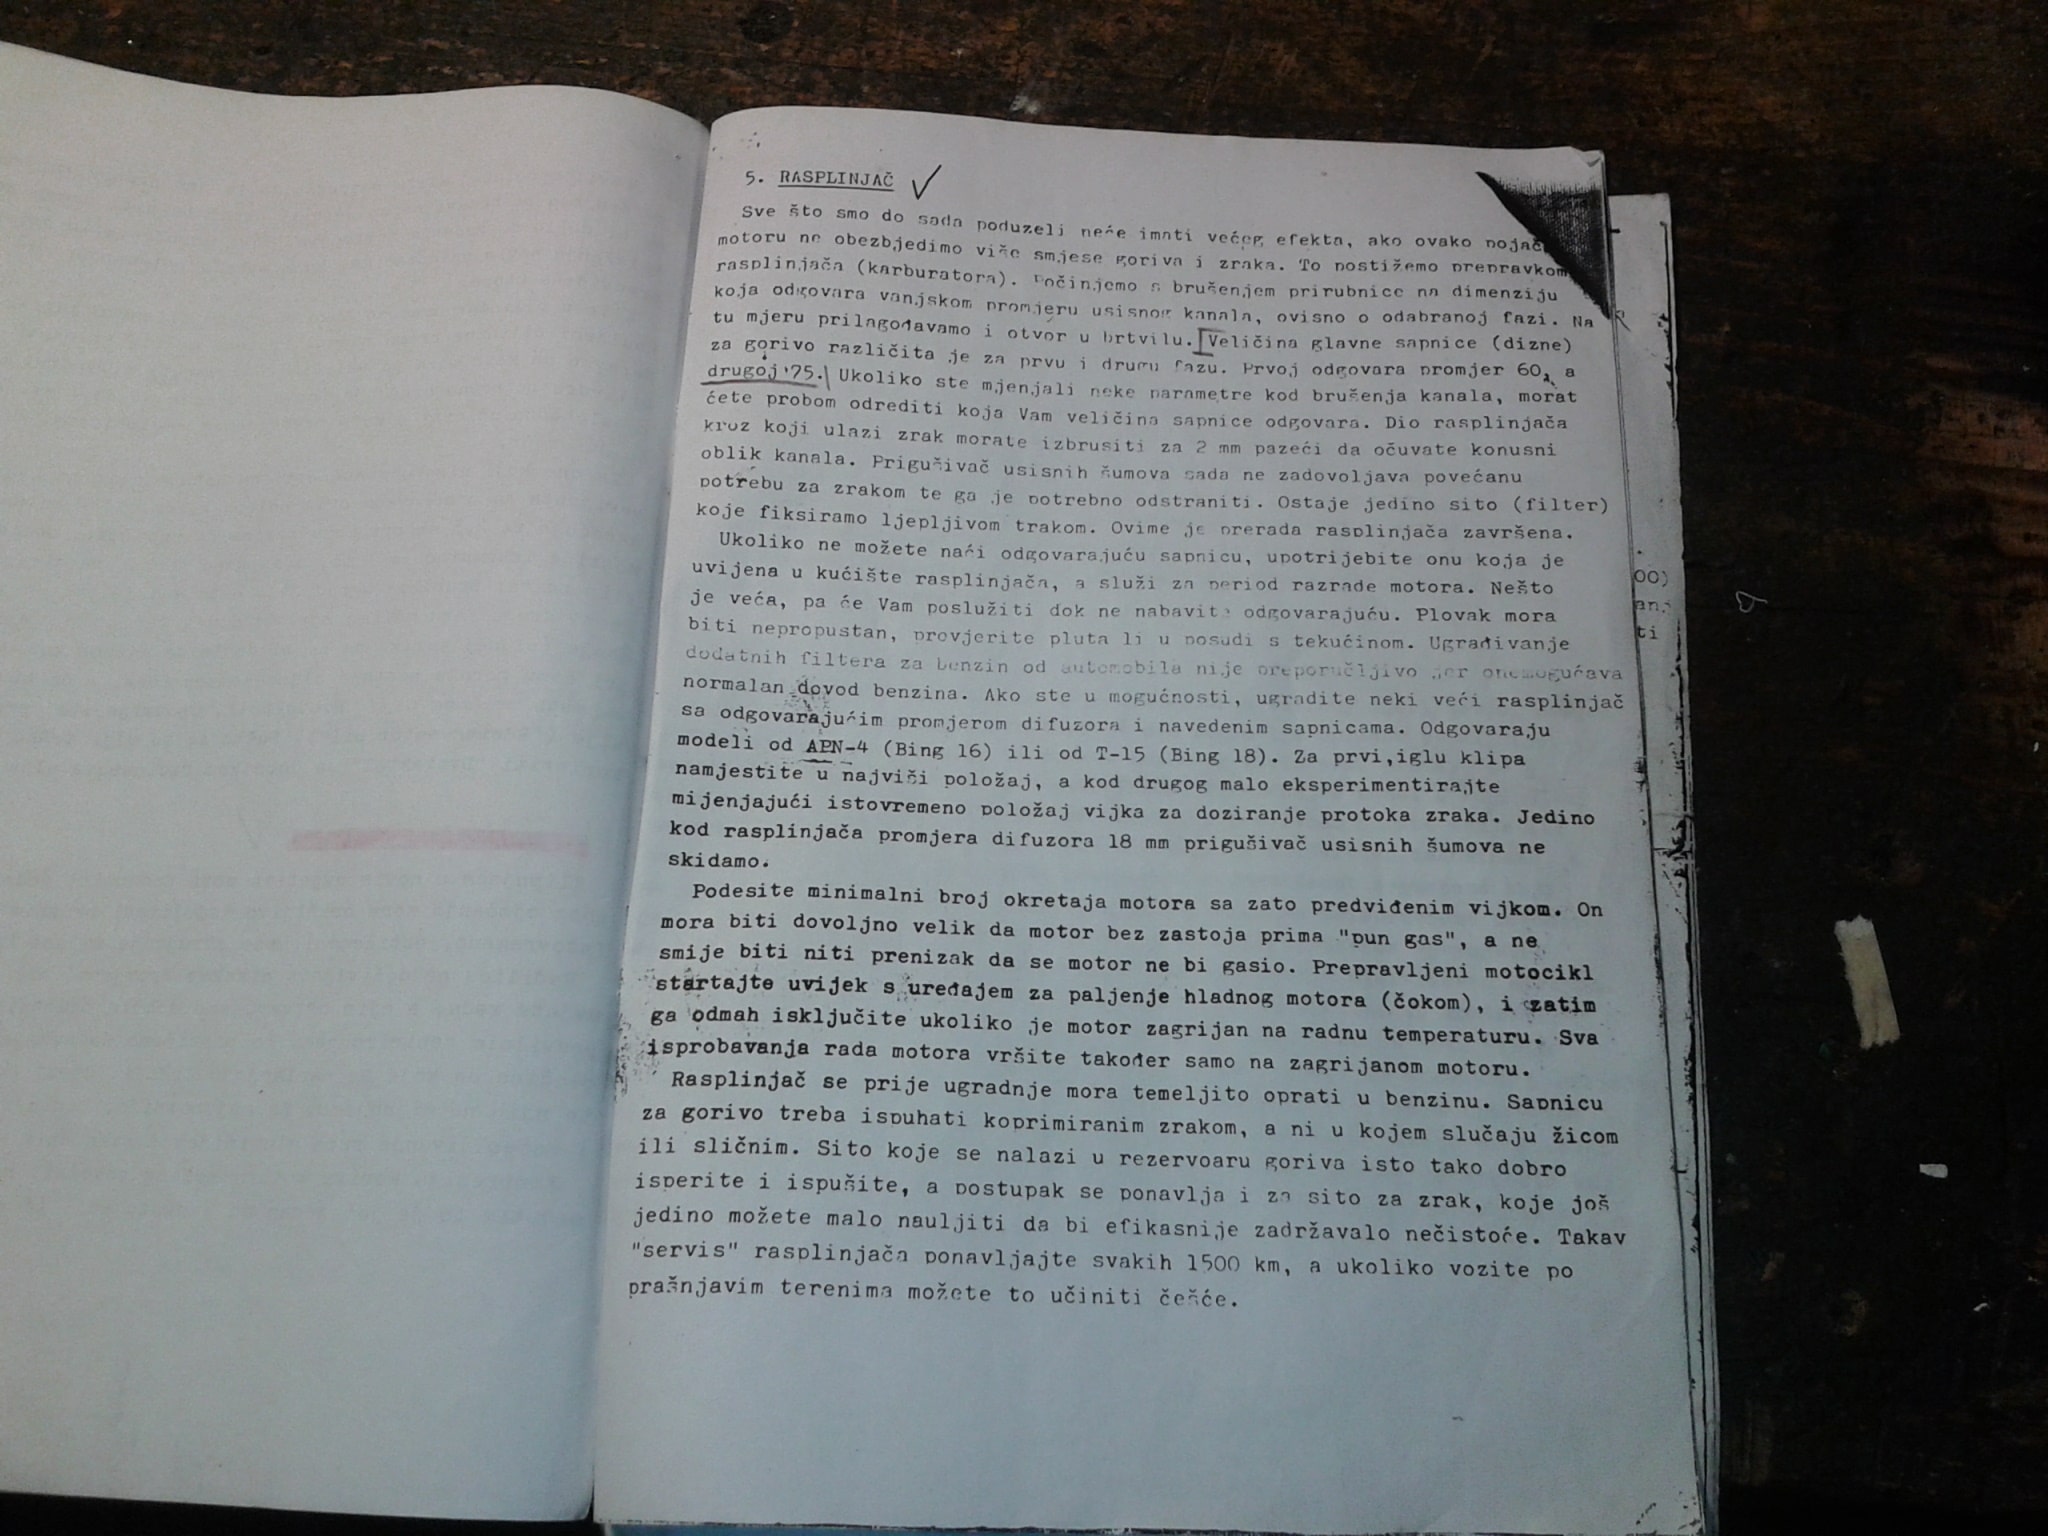 5. RASPLINJAČ ✓
Sve što smo do sada poduzeli neće imati većeg efekta, ako ovako
motoru ne obezbjedimo više smjese goriva i zraka. To postižemo prepravkom
rasplinjača (karburatora). Počinjemo s brušenjem prirubnice na dimenziju
koja odgovara vanjskom promjeru usisnog kanala, ovisno o odabranoj fazi. Na
tu mjeru prilagođavamo i otvor u brtvilu. Veličina glavne sapnice (dizne)
za gorivo različita je za prvu i drugu fazu. Prvoj odgovara promjer 60, a
drugoj 75. Ukoliko ste mjenjali neke parametre kod brušenja kanala, morat
ćete probom odrediti koja Vam veličina sapnice odgovara. Dio rasplinjača
kroz koji ulazi zrak morate izbrusiti za 2 mm pazeći da očuvate konusni
oblik kanala. Prigušivač usisnih šumova sada ne zadovoljava povećanu
potrebu za zrakom te ga je potrebno odstraniti. Ostaje jedino sito (filter)
koje fiksiramo ljepljivom trakom. Ovime je prerada rasplinjača završena.
Ukoliko ne možete naći odgovarajuću sapnicu, upotrijebite onu koja je
uvijena u kućište rasplinjača, a služi za period razrade motora. Nešto
je veća, pa će Vam poslužiti dok ne nabavite odgovarajuću. Plovak mora
biti nepropustan, provjerite pluta li u posudi s tekućinom. Ugrađivanje
dodatnih filtera za benzin od automobila nije preporučljivo jer onemogućava
normalan dovod benzina. Ako ste u mogućnosti, ugradite neki veći rasplinjač
sa odgovarajućim promjerom difuzora i navedenim sapnicama. Odgovaraju
modeli od APN-4 (Bing 16) ili od T-15 (Bing 18). Za prvi,iglu klipa
namjestite u najviši položaj, a kod drugog malo eksperimentirajte
mijenjajući istovremeno položaj vijka za doziranje protoka zraka. Jedino
kod rasplinjača promjera difuzora 18 mm prigušivač usisnih šumova ne
skidamo.
Podesite minimalni broj okretaja motora sa zato predviđenim vijkom. On
mora biti dovoljno velik da motor bez zastoja prima "pun gas", a ne
smije biti niti prenizak da se motor ne bi gasio. Prepravljeni motocikl
startajte uvijek s uređajem za paljenje hladnog motora (čokom), i zatim
ga odmah isključite ukoliko je motor zagrijan na radnu temperaturu. Sva
isprobavanja rada motora vršite također samo na zagrijanom motoru.
Rasplinjač se prije ugradnje mora temeljito oprati u benzinu. Sapnicu
za gorivo treba ispuhati koprimiranim zrakom, a ni u kojem slučaju žicom
ili sličnim. Sito koje se nalazi u rezervoaru goriva isto tako dobro
isperite i ispušite, a postupak se ponavlja i za sito za zrak, koje još
jedino možete malo nauljiti da bi efikasnije zadržavalo nečistoće. Takav
"servis" rasplinjača ponavljajte svakih 1500 km, a ukoliko vozite po
prašnjavim terenima možete to učiniti češće.
00)
an.
ti